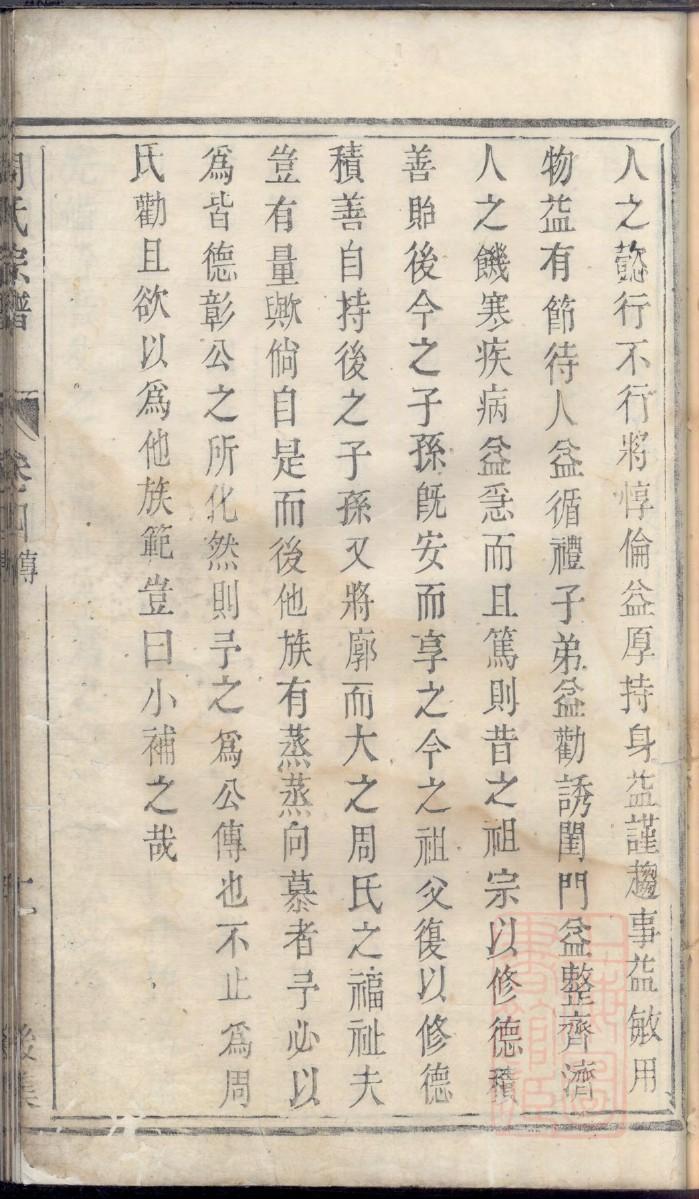 人之懿行不行將惇倫益厚持身益謹趨事益敏用
物益有節待人益循禮子弟益勸誘閨門益整齊濟
人之饑寒疾病益急而且篤則昔之祖宗以修德積
善貽後今之子孫旣安而享之今之祖父復以修德
積善自持後之子孫又將廓而大之周氏之福祉夫
豈有量歟倘自是而後他族有蒸蒸向慕者予必以
爲皆德彰公之所化然則予之爲公傳也不止爲周
氏勸且欲以爲他族範豈曰小補之哉
周氏宗譜 卷四 傳